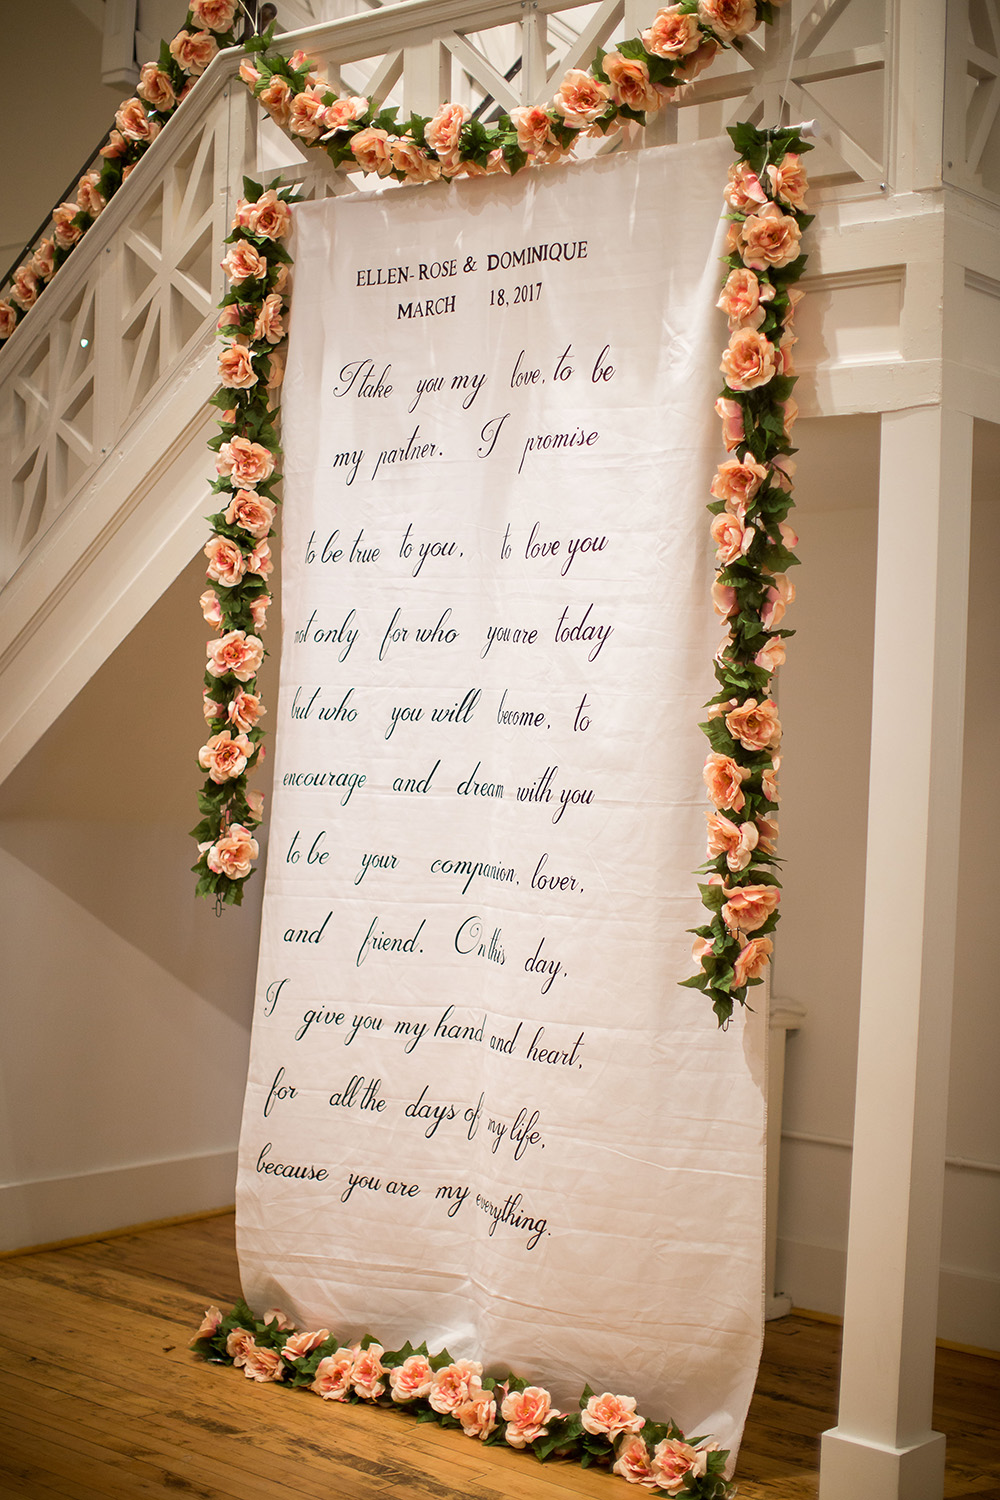 ELLEN-ROSE & DOMINIQUE
MARCH 18, 2017
I take you my love, to be
my partner. I promise
to be true to you, to love you
not only for who you are today
but who you will become, to
encourage and dream with you
to be your companion, lover,
and friend. On this day,
I give you my hand and heart,
for all the days of my life,
because you are my everything.